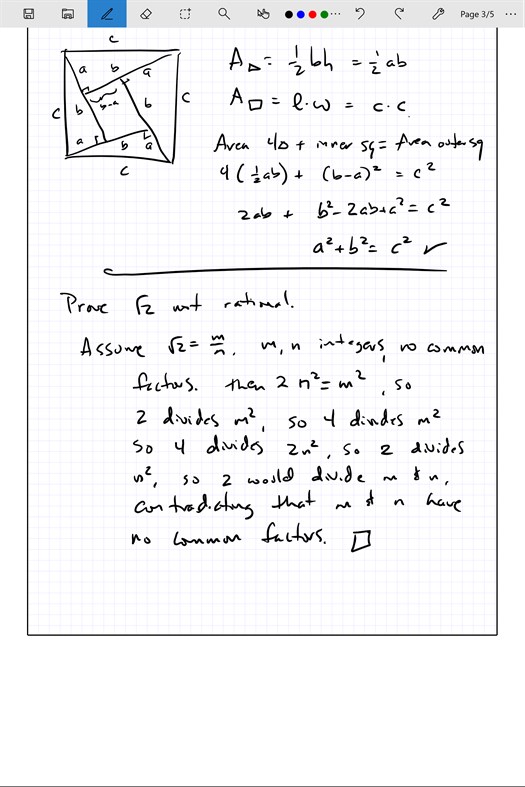 Page 3/5
c
a b a
b b-a b
c c
a b a
c
A△ = ½bh = ½ab
A□ = l·w = c·c
Area 4△ + inner sq = Area outer sq
4(½ab) + (b-a)² = c²
2ab + b²-2ab+a² = c²
a²+b² = c² ✓
Prove √2 not rational.
Assume √2 = m/n, m, n integers, no common
factors. then 2n² = m², so
2 divides m², so 4 divides m²
so 4 divides 2n², so 2 divides
n², so 2 would divide m & n,
contradicting that m & n have
no common factors. □